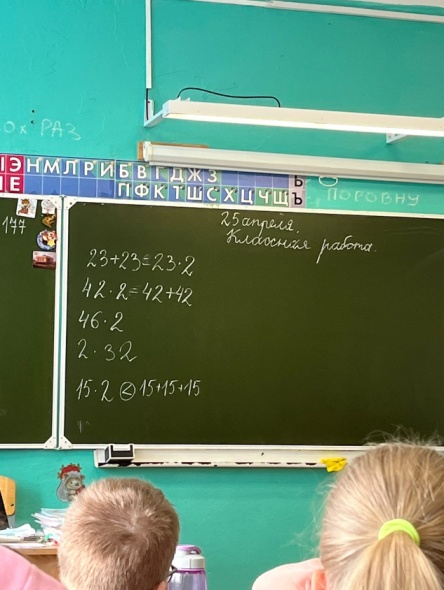 РАЗ
ЭНМЛРЙБВГДЖЗ Ь
ПФКТШСХЦЧЩЪ
ПОРОВНУ
177
25 апреля.
Классная работа.
23+23=23·2
42·2=42+42
46·2
2·32
15·2<15+15+15